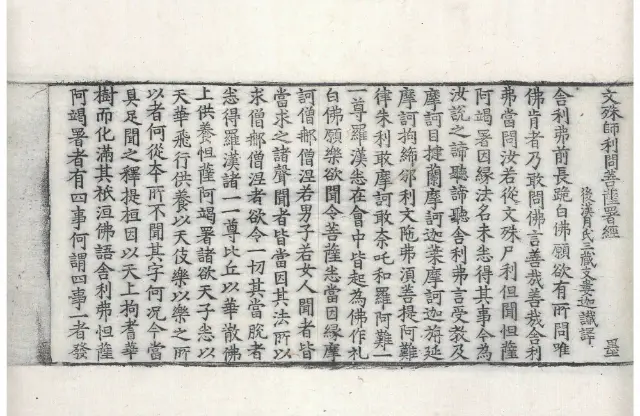 文殊師利問菩薩署經 墨
後漢月氏三藏支婁迦讖譯
舍利弗前長跪白佛願欲有所問唯
佛肯者乃敢問佛言善哉善哉舍利
弗當問汝若從文殊尸利但聞怛薩
阿竭署因緣法名未悉得其事今為
汝說之諦聽諦聽舍利弗言受教及
摩訶目揵蘭摩訶迦葉摩訶迦旃延
摩訶拘絺邠利文陁弗須菩提阿難
律朱利敢摩訶敢奈吒和羅阿難一
一尊羅漢悉在會中皆起為佛作礼
白佛願樂欲聞令菩薩悉當因緣摩
訶僧郍僧涅若男子若女人聞者皆
當求之諸聲聞者皆當因其法所以
求僧郍僧涅者欲令一切其當脫者
悉得羅漢諸一尊比丘以華散佛
上供養怛薩阿竭署諸欲天子悉以
天華飛行供養以天伎樂以樂之所
以者何從本所不聞其字何況今當
具足聞之釋提桓因以天上拘耆華
樹而化滿其祇洹佛語舍利弗怛薩
阿竭署者有四事何謂四事一者發